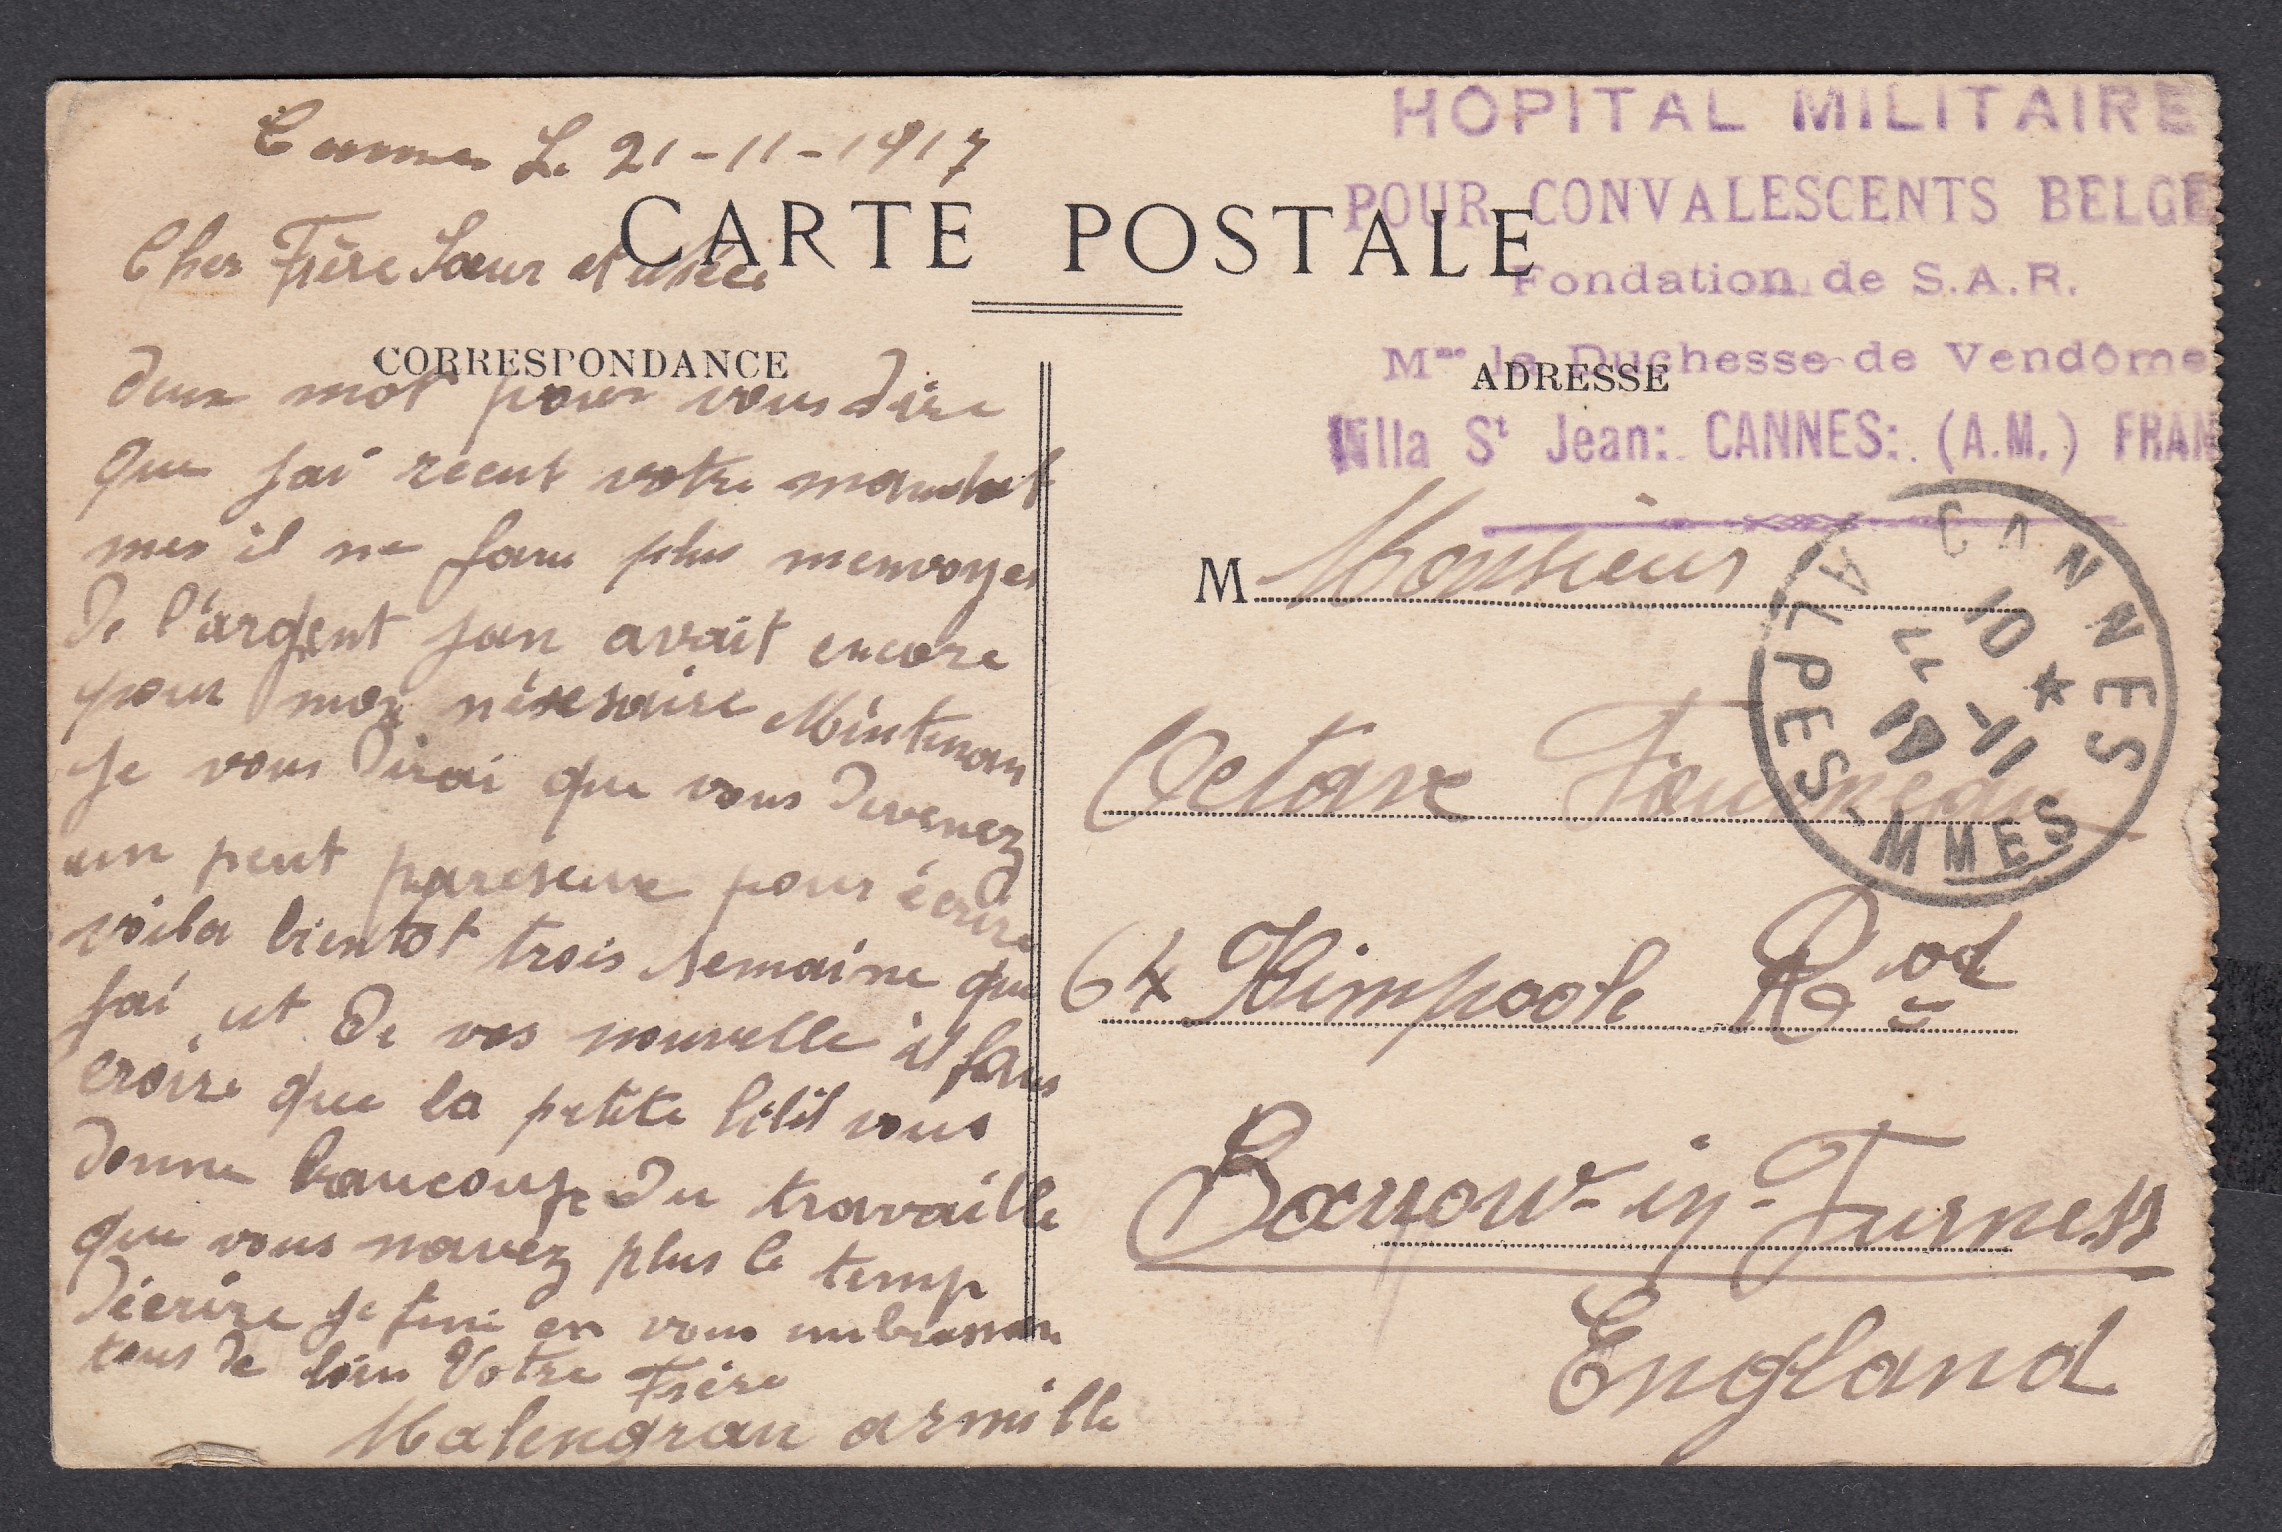 Cannes Le 21-11-1917
CARTE POSTALE
Cher Frère Sœur et nièce
CORRESPONDANCE
deux mot pour vous dire
que jai recut votre mandat
mes il ne faru plus menvoyer
de l'argent jan avait encore
pour mon nésesaire Mintenan
je vous dirai que vous devenez
un peut pareseux pour écrire
voila bientot trois semaine que
jai ut de vos nouvelle il faus
croire que la petite vous
donne beaucoup du travaille
que vous navez plus le temp
décrire je fini en vous embrassan
tous de loin Votre Frère
Malengrau armille
HOPITAL MILITAIRE
POUR CONVALESCENTS BELGE
Fondation de S.A.R.
Mme la Duchesse de Vendôme
Villa St Jean: CANNES: (A.M.) FRAN
ADRESSE
M Monsieur
Octave Fourneau
64 Rod
Barrow-in-Furness
England
CANNES
ALPES-MMES
10
★
11
17